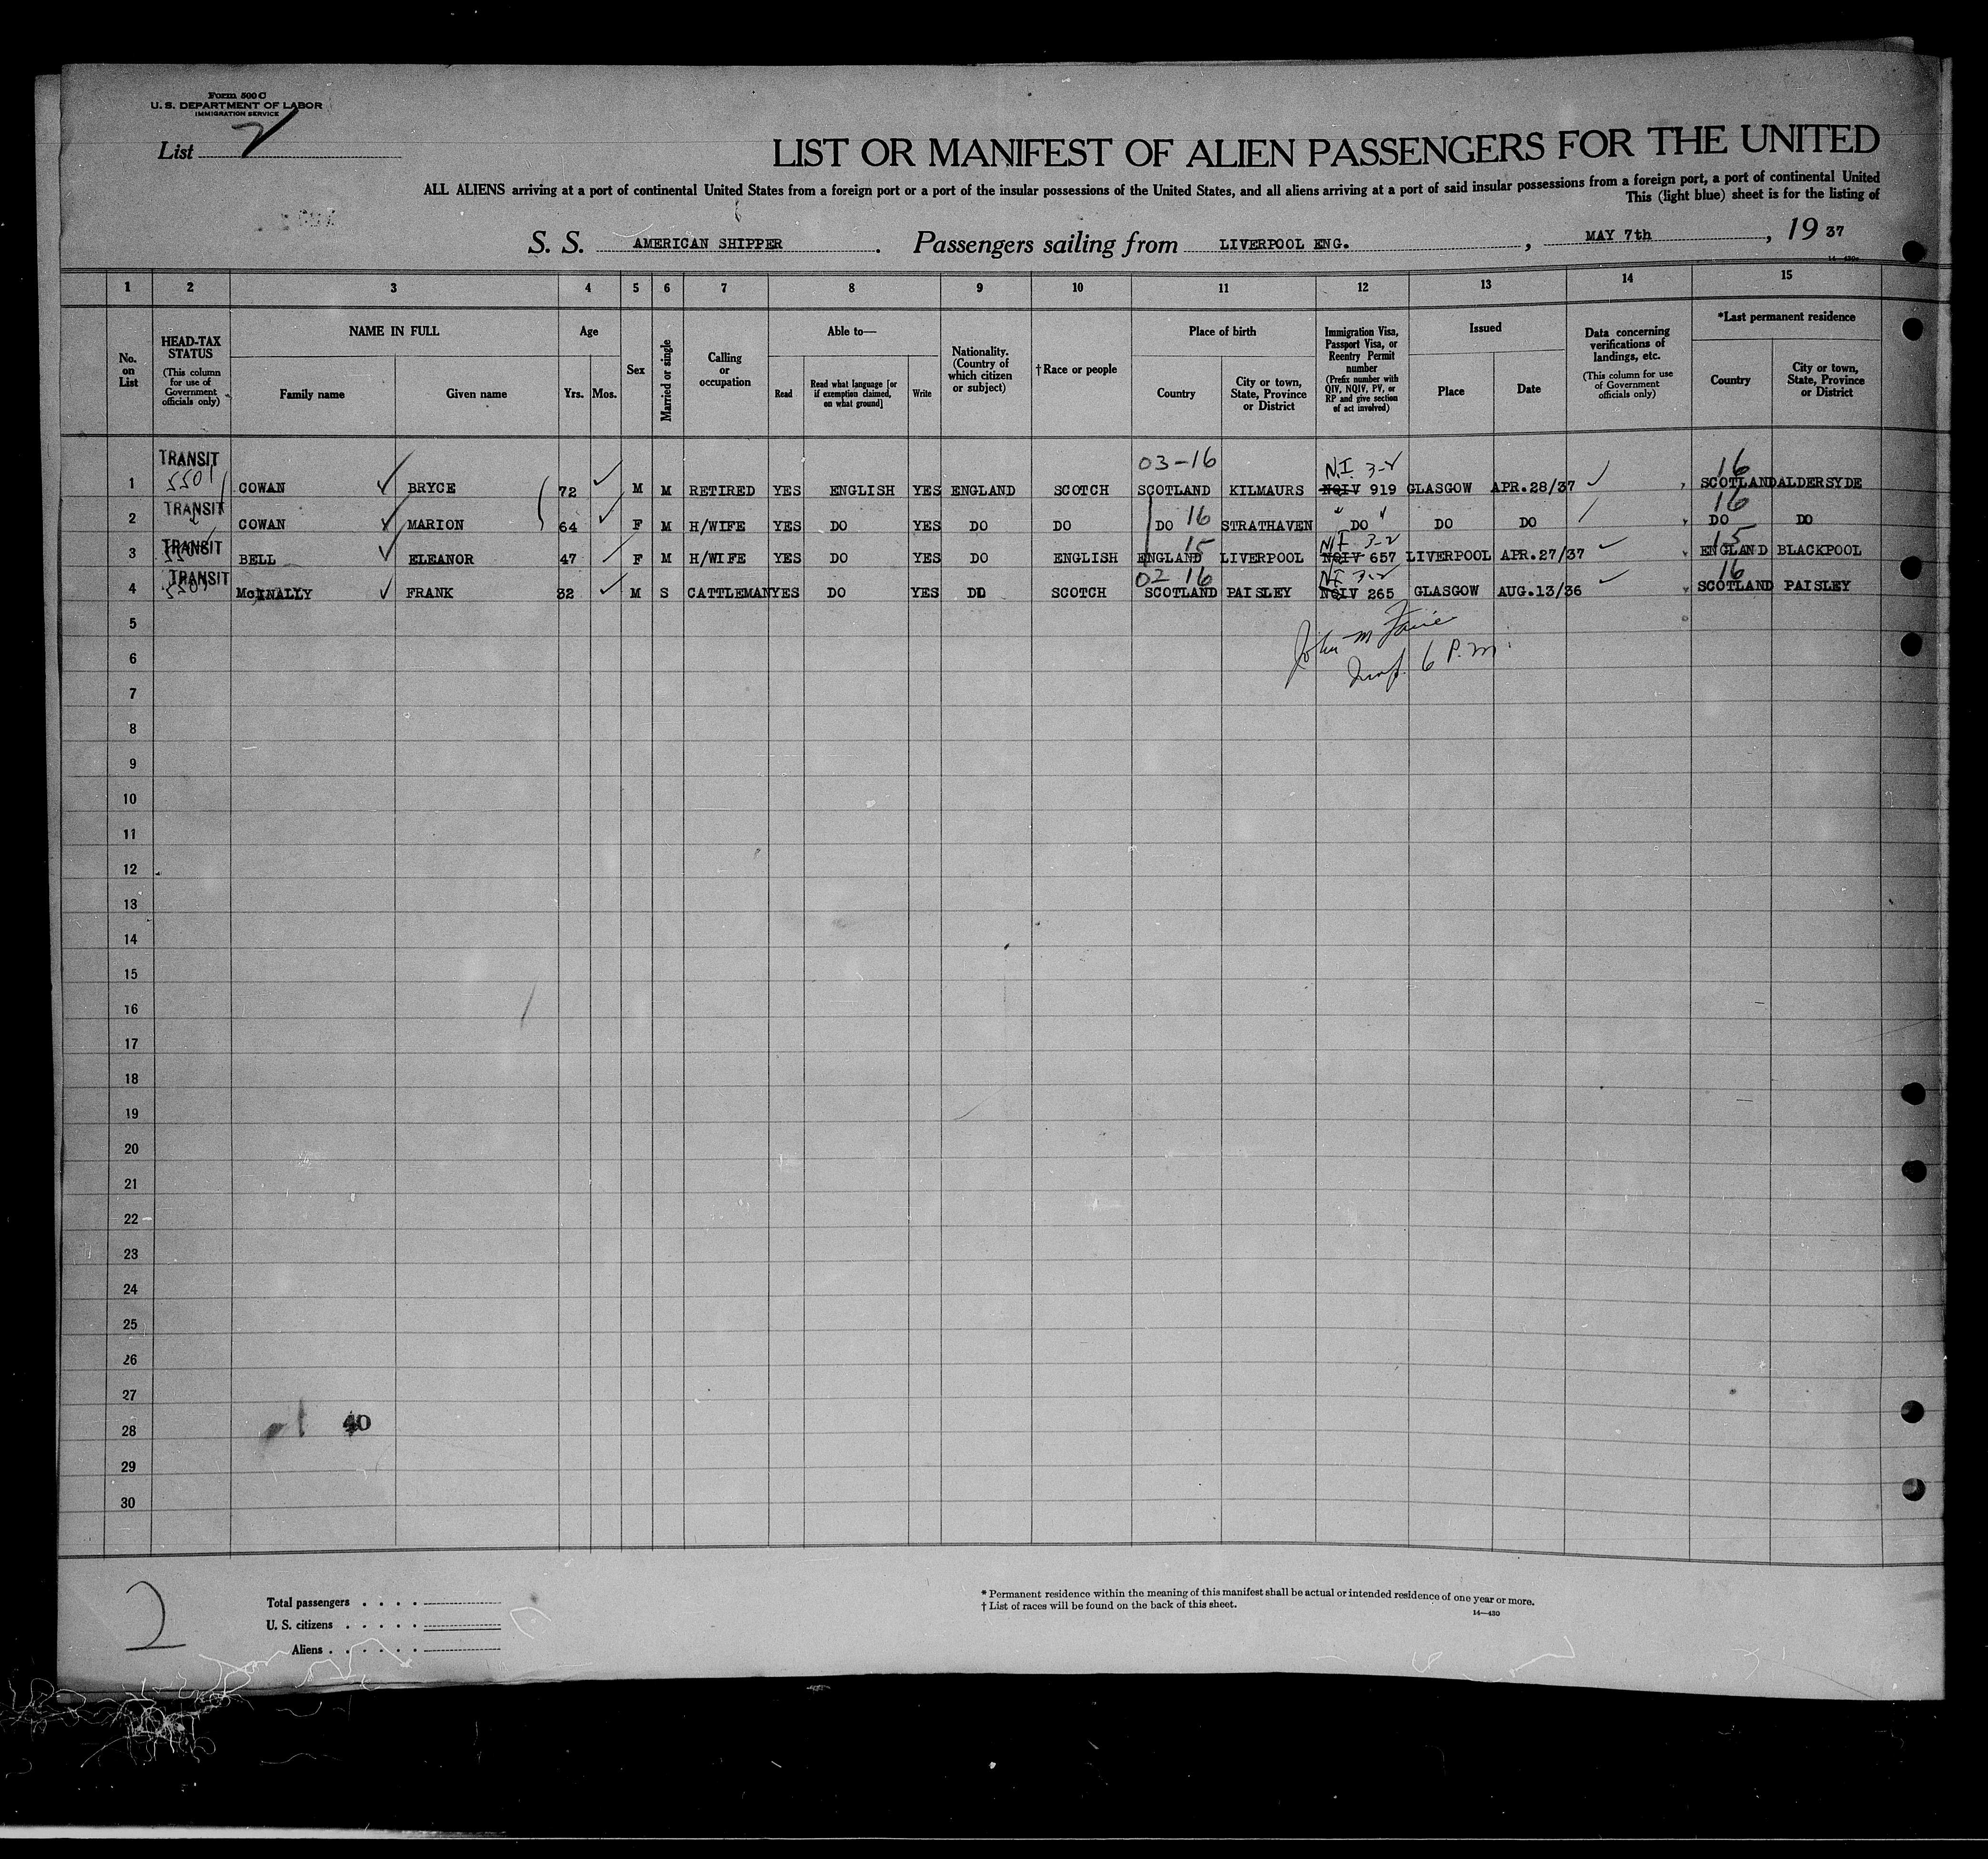 Form 500 C
U. S. DEPARTMENT OF LABOR
IMMIGRATION SERVICE
List 2
LIST OR MANIFEST OF ALIEN PASSENGERS FOR THE UNITED
ALL ALIENS arriving at a port of continental United States from a foreign port or a port of the insular possessions of the United States, and all aliens arriving at a port of said insular possessions from a foreign port, a port of continental United
This (light blue) sheet is for the listing of
S. S. AMERICAN SHIPPER. Passengers sailing from LIVERPOOL ENG., MAY 7th, 19 37
1 2 3 4 5 6 7 8 9 10 11 12 13 14 15
No. on List
HEAD-TAX STATUS (This column for use of Government officials only)
NAME IN FULL
Family name Given name
Age
Yrs. Mos.
Sex
Married or single
Calling or occupation
Able to—
Read
Read what language [or if exemption claimed, on what ground]
Write
Nationality. (Country of which citizen or subject)
† Race or people
Place of birth
Country
City or town, State, Province or District
Immigration Visa, Passport Visa, or Reentry Permit number (Prefix number with QIV, NQIV, PV, or RP and give section of act involved)
Issued
Place Date
Data concerning verifications of landings, etc. (This column for use of Government officials only)
*Last permanent residence
Country
City or town, State, Province or District
TRANSIT 03-16 N.I. 3-2 16
1 5501 COWAN BRYCE 72 M M RETIRED YES ENGLISH YES ENGLAND SCOTCH SCOTLAND KILMAURS NQIV 919 GLASGOW APR.28/37 SCOTLAND ALDERSYDE
TRANSIT 16 16
2 COWAN MARION 64 F M H/WIFE YES DO YES DO DO DO STRATHAVEN " DO " DO DO DO DO
TRANSIT 15 N.I. 3-2 15
3 BELL ELEANOR 47 F M H/WIFE YES DO YES DO ENGLISH ENGLAND LIVERPOOL NQIV 657 LIVERPOOL APR.27/37 ENGLAND BLACKPOOL
TRANSIT 02 16 N.I. 3-2 16
4 McINALLY FRANK 32 M S CATTLEMAN YES DO YES DO SCOTCH SCOTLAND PAISLEY NQIV 265 GLASGOW AUG.13/36 SCOTLAND PAISLEY
5
John M
6
6 P.M.
7
8
9
10
11
12
13
14
15
16
17
18
19
20
21
22
23
24
25
26
27
28 40
29
30
2
Total passengers . . . .
U. S. citizens . . . . .
Aliens . . . . . .
* Permanent residence within the meaning of this manifest shall be actual or intended residence of one year or more.
† List of races will be found on the back of this sheet.
14—430